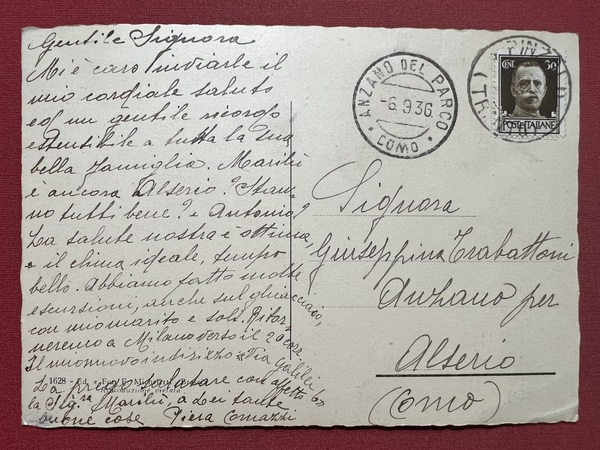 Gentile Signora
Mi è caro inviarle il
mio cordiale saluto
ed un gentile ricordo
estensibile a tutta la sua
bella famiglia. Marilù
è ancora Alserio? Stan-
no tutti bene? e Antonio?
La salute nostra è ottima,
e il clima ideale, tempo
bello. Abbiamo fatto molte
escursioni, anche sul ghiacciaio,
con mio marito e sola. Ritor-
neremo a Milano verso il 20 corr.
Il mio nuovo indirizzo Via Galilei
La prego salutare con affetto
la Sig.ra Marilù, a Lei tante
buone cose Piera Comazzi
1628 - Ed. e
vietata
ANZANO DEL PARCO
-6.9.36
COMO
PINZOLO
(TR
CENT. 30
POSTE ITALIANE
Signora
Giuseppina Trabattoni
Anzano per
Alserio
(Como)